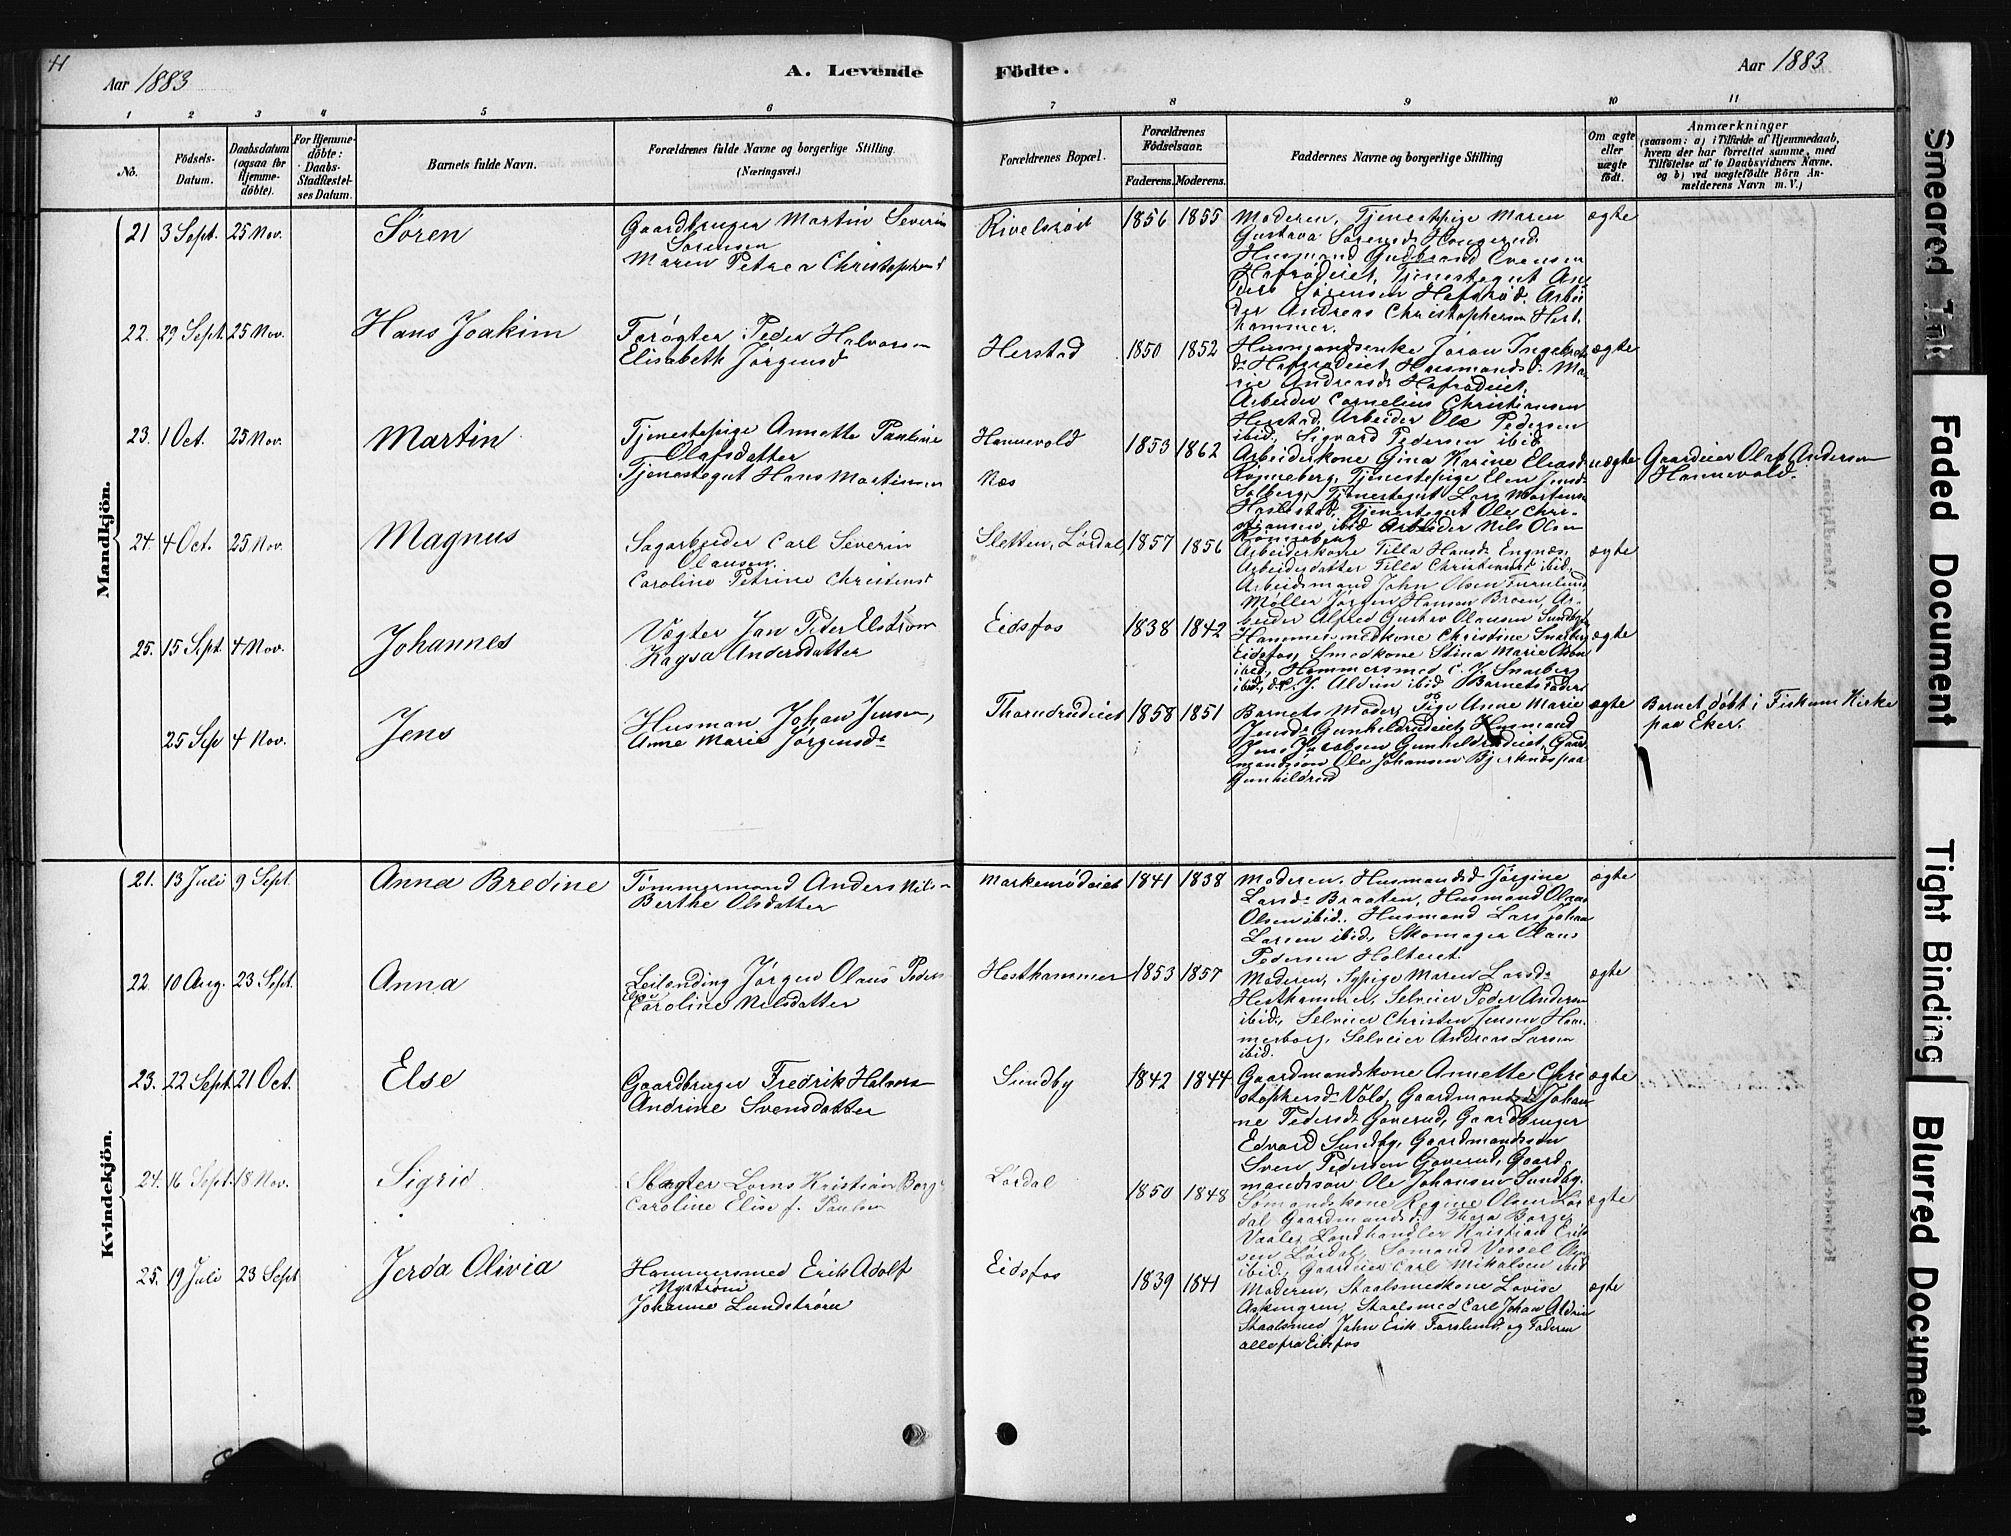 Aar 1883
A. Levende
Födte.
Aar 1883
1 2 3 4 5 6 7 8 9 10 11
No.
Födsels-Datum.
Daabsdatum (ogsaa for Hjemmedöbte).
For Hjemmedöbte: Daabs-Stadfæstelses Datum.
Barnets fulde Navn.
Forældrenes fulde Navne og borgerlige Stilling.
(Næringsvei.)
Forældrenes Bopæl.
Forældrenes Födselsaar.
Faderens. Moderens.
Faddernes Navne og borgerlige Stilling
Om ægte eller uægte födt.
Anmærkninger
(saasom: a) i Tilfælde af Hjemmedaab,
hvem der har forrettet samme, med
Tilföielse af to Daabsvidners Navne.
og b) ved uægtefödte Börn Anmelderens Navn m. V.)
Mandkjön.
21 3 Sept. 25 Nov. Søren
Gaardbruger Martin Severin
Sørensen
Maren Petrea Christophersd
Rivelsrød 1856 1855
Moderen, Tjenestepige Maren
Gustava Sørensd. Haugerud
Husmand Gudbrand Evensen
Hafrødeiet, Tjenestegut An-
ders Sørensen Hafsrød, Arbei
der Andreas Christophersen Hest
hammer.
ægte
22. 29 Sept. 25 Nov. Hans Joakim
Førøgter Peder Halvorsen
Elisabeth Jørgensd
Herstad 1850 1852
Husmandsenke Joran Ingebrets
d. Hafrødeiet, Husmandsd. Ma
rie Andreasd. Hafrødeiet,
Arbeider Cornelius Christiansen
Herstad, Arbeider Ole Pedersen
ibid, Sigvard Pedersen ibid
ægte
23. 1 Oct. 25 Nov. Martin
Tjenestepige Annette Pauline
Olafsdatter
Tjenestegut Hans Martinsen
Hannevold
Næs
1853 1862
Arbeiderkone Gina Karine Eliasd
Rønneberg, Tjenestepige Elen Jensd
Solberg, Tjenestegut Lars Mortens
Haslestad, Tjenestegut Ole Chri-
stiansen, ibid Arbeider Nils Olsen
Rønneberg
uægte
Gaardeier Olaf Andersen
Hannevold.
24. 4 Oct. 25 Nov. Magnus
Sagarbeider Carl Severin
Olausen
Caroline Petrine Christensd
Sletten, Lørdal 1857 1856
Arbeiderkone Tilla Hansd. Engnæs,
Arbeidsdatter Tilla Christiansd ibid,
Arbeidsmand John Olsen Furulund
Møller Jørgen Hansen Broen, Ar-
beider Alfred Gustav Olausen Sundby
ægte
25. 15 Sept. 4 Nov. Johannes
Vægter Jan Peter Elstrøm
Kaysa Andersdatter
Eidsfos 1838 1842
Hammersmedkone Christine Snarberg
Eidsfos, Smedkone Stina Marie
ibid, Hammersmed C. J. Snarberg
ibid, C. J. Aldrin ibid Barnets Fader
ægte
25 Sep 4 Nov. Jens
Husman Johan Jensen,
Anne Marie Jørgensd
Thorudeiet 1858 1851
Barnets Moder, og Pige Anne Marie
Jensd. Gunhildrudeiet, Husmand
Jens Jacobsen Gunhildrudeiet, Gaard
mandssøn Ole Johansen Bjerknæs paa
Gunhildrud
ægte
Barnet døbt i Fiskum Kirke
paa Eker.
Kvindekjön.
21. 13 Juli 9 Sept. Anna Bredine
Tømmermand Anders Nils
Berthe Olsdatter
Markerødeiet 1841 1838
Moderen, Husmandsd. Jørgine
Larsd. Braaten, Husmand Olaus
Olsen ibid. Husmand Lars Johan
Larsen ibid, Skomager Olaus
Pedersen Holteret.
ægte
22. 10 Aug. 23 Sept. Anna
Leilænding Jørgen Olaus Peders
Caroline Nilsdatter
Hesthammer 1853 1857
Moderen, Sypige Maren Larsd.
Hesthammer, Selveier Peder Andersen
ibid, Selveier Christen Jensen Ham-
merborg, Selveier Andreas Larsen
ibid.
ægte
23. 22 Sept. 21 Oct. Else
Gaardbruger Fredrik Halvors
Andrine Svensdatter
Sundby 1842 1844
Gaardmandskone Annette Chri
stophersd. Vold, Gaardmandsd. Johan
ne Pedersd. Goverud, Gaardbruger
Edvard Sundby, Gaardmandssøn
Sven Pedersen Goverud, Gaard-
mandssøn Ole Johansen Sundby.
ægte
24. 16 Sept. 18 Nov. Sigrid
Slagter Lorns Kristian Borg
Caroline Elise f. Paulsen
Lørdal 1850 1848
Sømandskone Regine Olsen Lør
dal Gaardmandsd. Thora Borge
Vaale, Landhandler Kristian Erik
sen Lørdal, Sømand Vessel
ibid, Gaardeier Carl Mikalsen ibid
ægte
25. 19 Juli 23 Sept Jerda Olivia
Hammersmed Erik Adolf
Nystrøm
Johanne Lundstrøm
Eidsfos 1839 1841
Moderen, Staalsmedkone Lovise
Askengren, Staalsmed Carl Johan Aldrin
Staalsmed John Erik Forslund og Faderen
alle fra Eidsfos
ægte
Smeared Ink
Faded Document
Tight Binding
Blurred Document